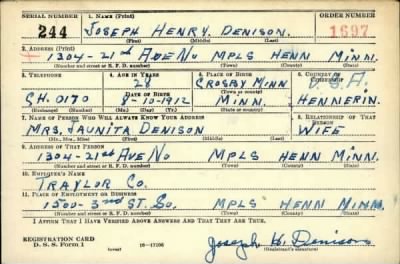 SERIAL NUMBER 1. NAME (Print) ORDER NUMBER
244 JOSEPH HENRY DENISON 1697
(First) (Middle) (Last)
2. ADDRESS (Print)
1304-21st AVE NO MPLS HENN MINN.
(Number and street or R. F. D. number) (Town) (County) (State)
3. TELEPHONE 4. AGE IN YEARS 5. PLACE OF BIRTH 6. COUNTRY OF
28 CROSBY MINN U.S.A.
DATE OF BIRTH (Town or county)
GH. 0170 8-10-1912 MINN. HENNERIN.
(Exchange) (Number) (Mo.) (Day) (Yr.) (State or country)
7. NAME OF PERSON WHO WILL ALWAYS KNOW YOUR ADDRESS 8. RELATIONSHIP OF THAT PERSON
MRS. JAUNITA DENISON WIFE
(Mr., Mrs., Miss) (First) (Middle) (Last)
9. ADDRESS OF THAT PERSON
1304-21st AVE NO MPLS HENN MINN.
(Number and street or R. F. D. number) (Town) (County) (State)
10. EMPLOYER'S NAME
TRAYLOR CO.
11. PLACE OF EMPLOYMENT OR BUSINESS
1500-3rd ST. SO. MPLS HENN MINN.
(Number and street or R. F. D. number) (Town) (County) (State)
I AFFIRM THAT I HAVE VERIFIED ABOVE ANSWERS AND THAT THEY ARE TRUE.
REGISTRATION CARD
D. S. S. Form 1 16-17105 Joseph H. Denison